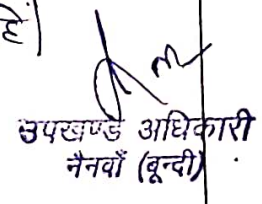 है।
उपखण्ड अधिकारी
नैनवाँ (बून्दी)